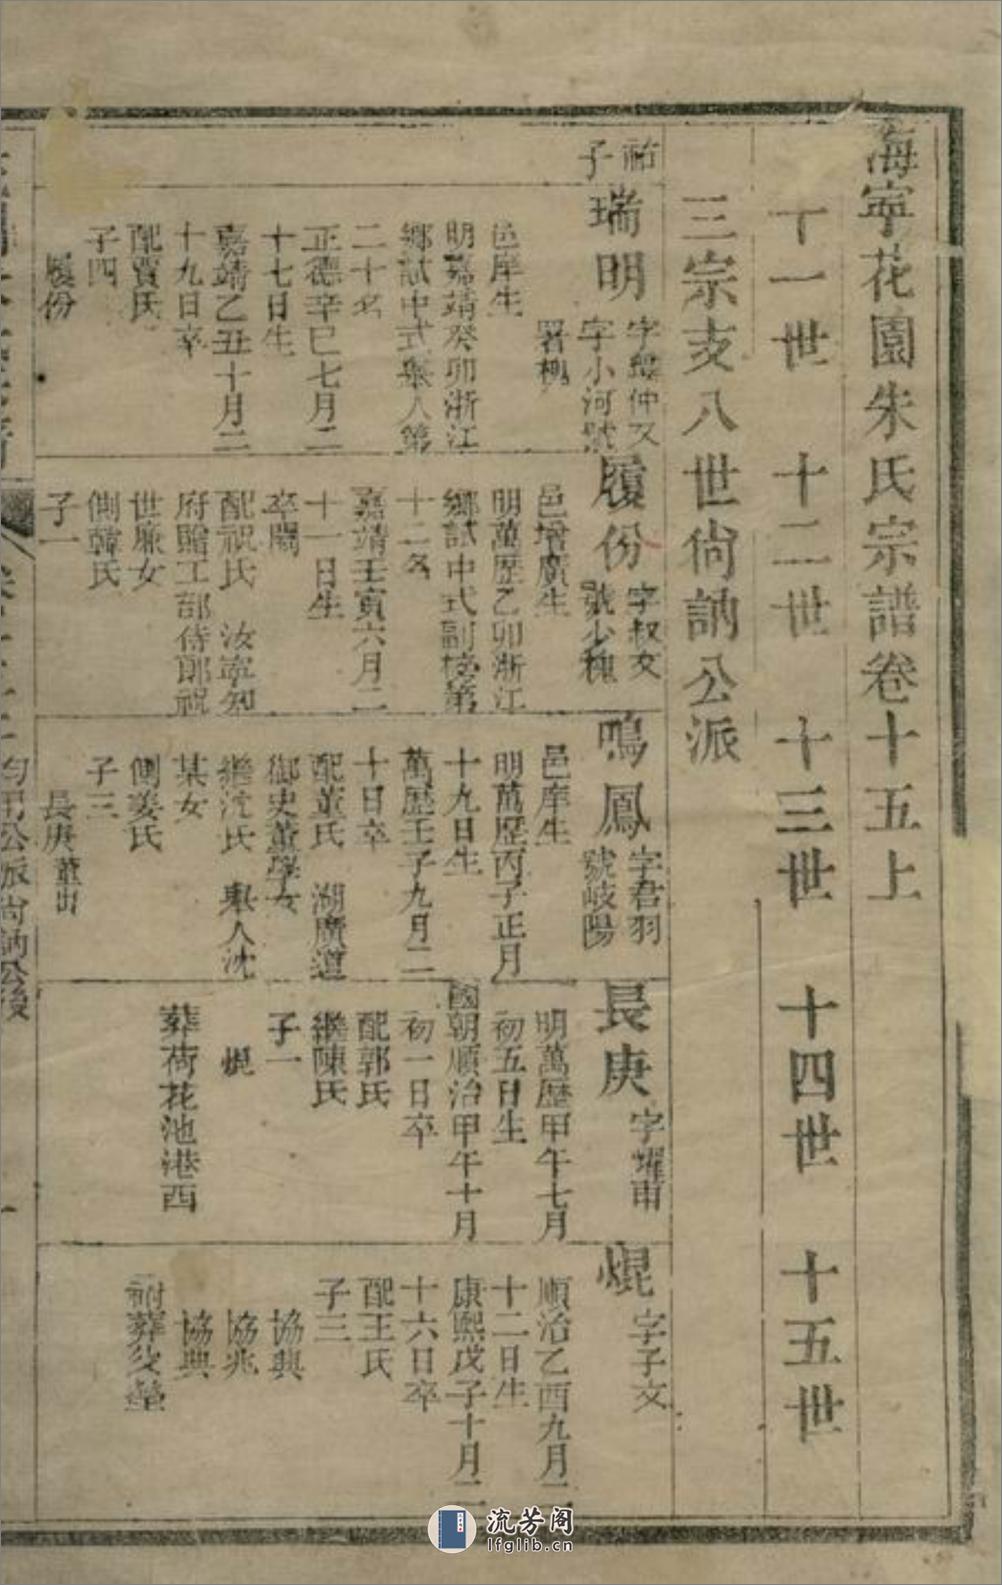 海寧花園朱氏宗譜卷十五上
十一世 十二世 十三世 十四世 十五世
三宗支八世尚訥公派
祐
子
瑞明
字小河號
署槐
邑庠生
明嘉靖癸卯浙江
鄉試中式舉人第
二十名
正德辛巳七月二
十七日生
嘉靖乙丑十月二
十九日卒
配賈氏
子四
履份
履份
字叔文
號少槐
邑增廣生
明萬歷乙卯浙江
鄉試中式副榜第
十二名
嘉靖壬寅六月二
十一日生
卒闕
配祝氏 汝寧知
府贈工部侍郎祝
世廉女
側韓氏
子一
鳴鳳
字君羽
號岐陽
邑庠生
明萬歷丙子正月
十九日生
萬歷壬子九月二
十日卒
配董氏 湖廣道
御史董學女
繼沈氏 舉人沈
某女
側姜氏
子三
長庚董出
長庚
字耀甫
明萬歷甲午七月
初五日生
國朝順治甲午十月
初一日卒
配郭氏
繼陳氏
子一
焜
葬荷花池港西
焜
字子文
順治乙酉九月二
十二日生
康熙戊子十月二
十六日卒
配王氏
子三
協興
協兆
協典
祔葬父塋
公派尚訥公後
流芳阁
lfglib.cn